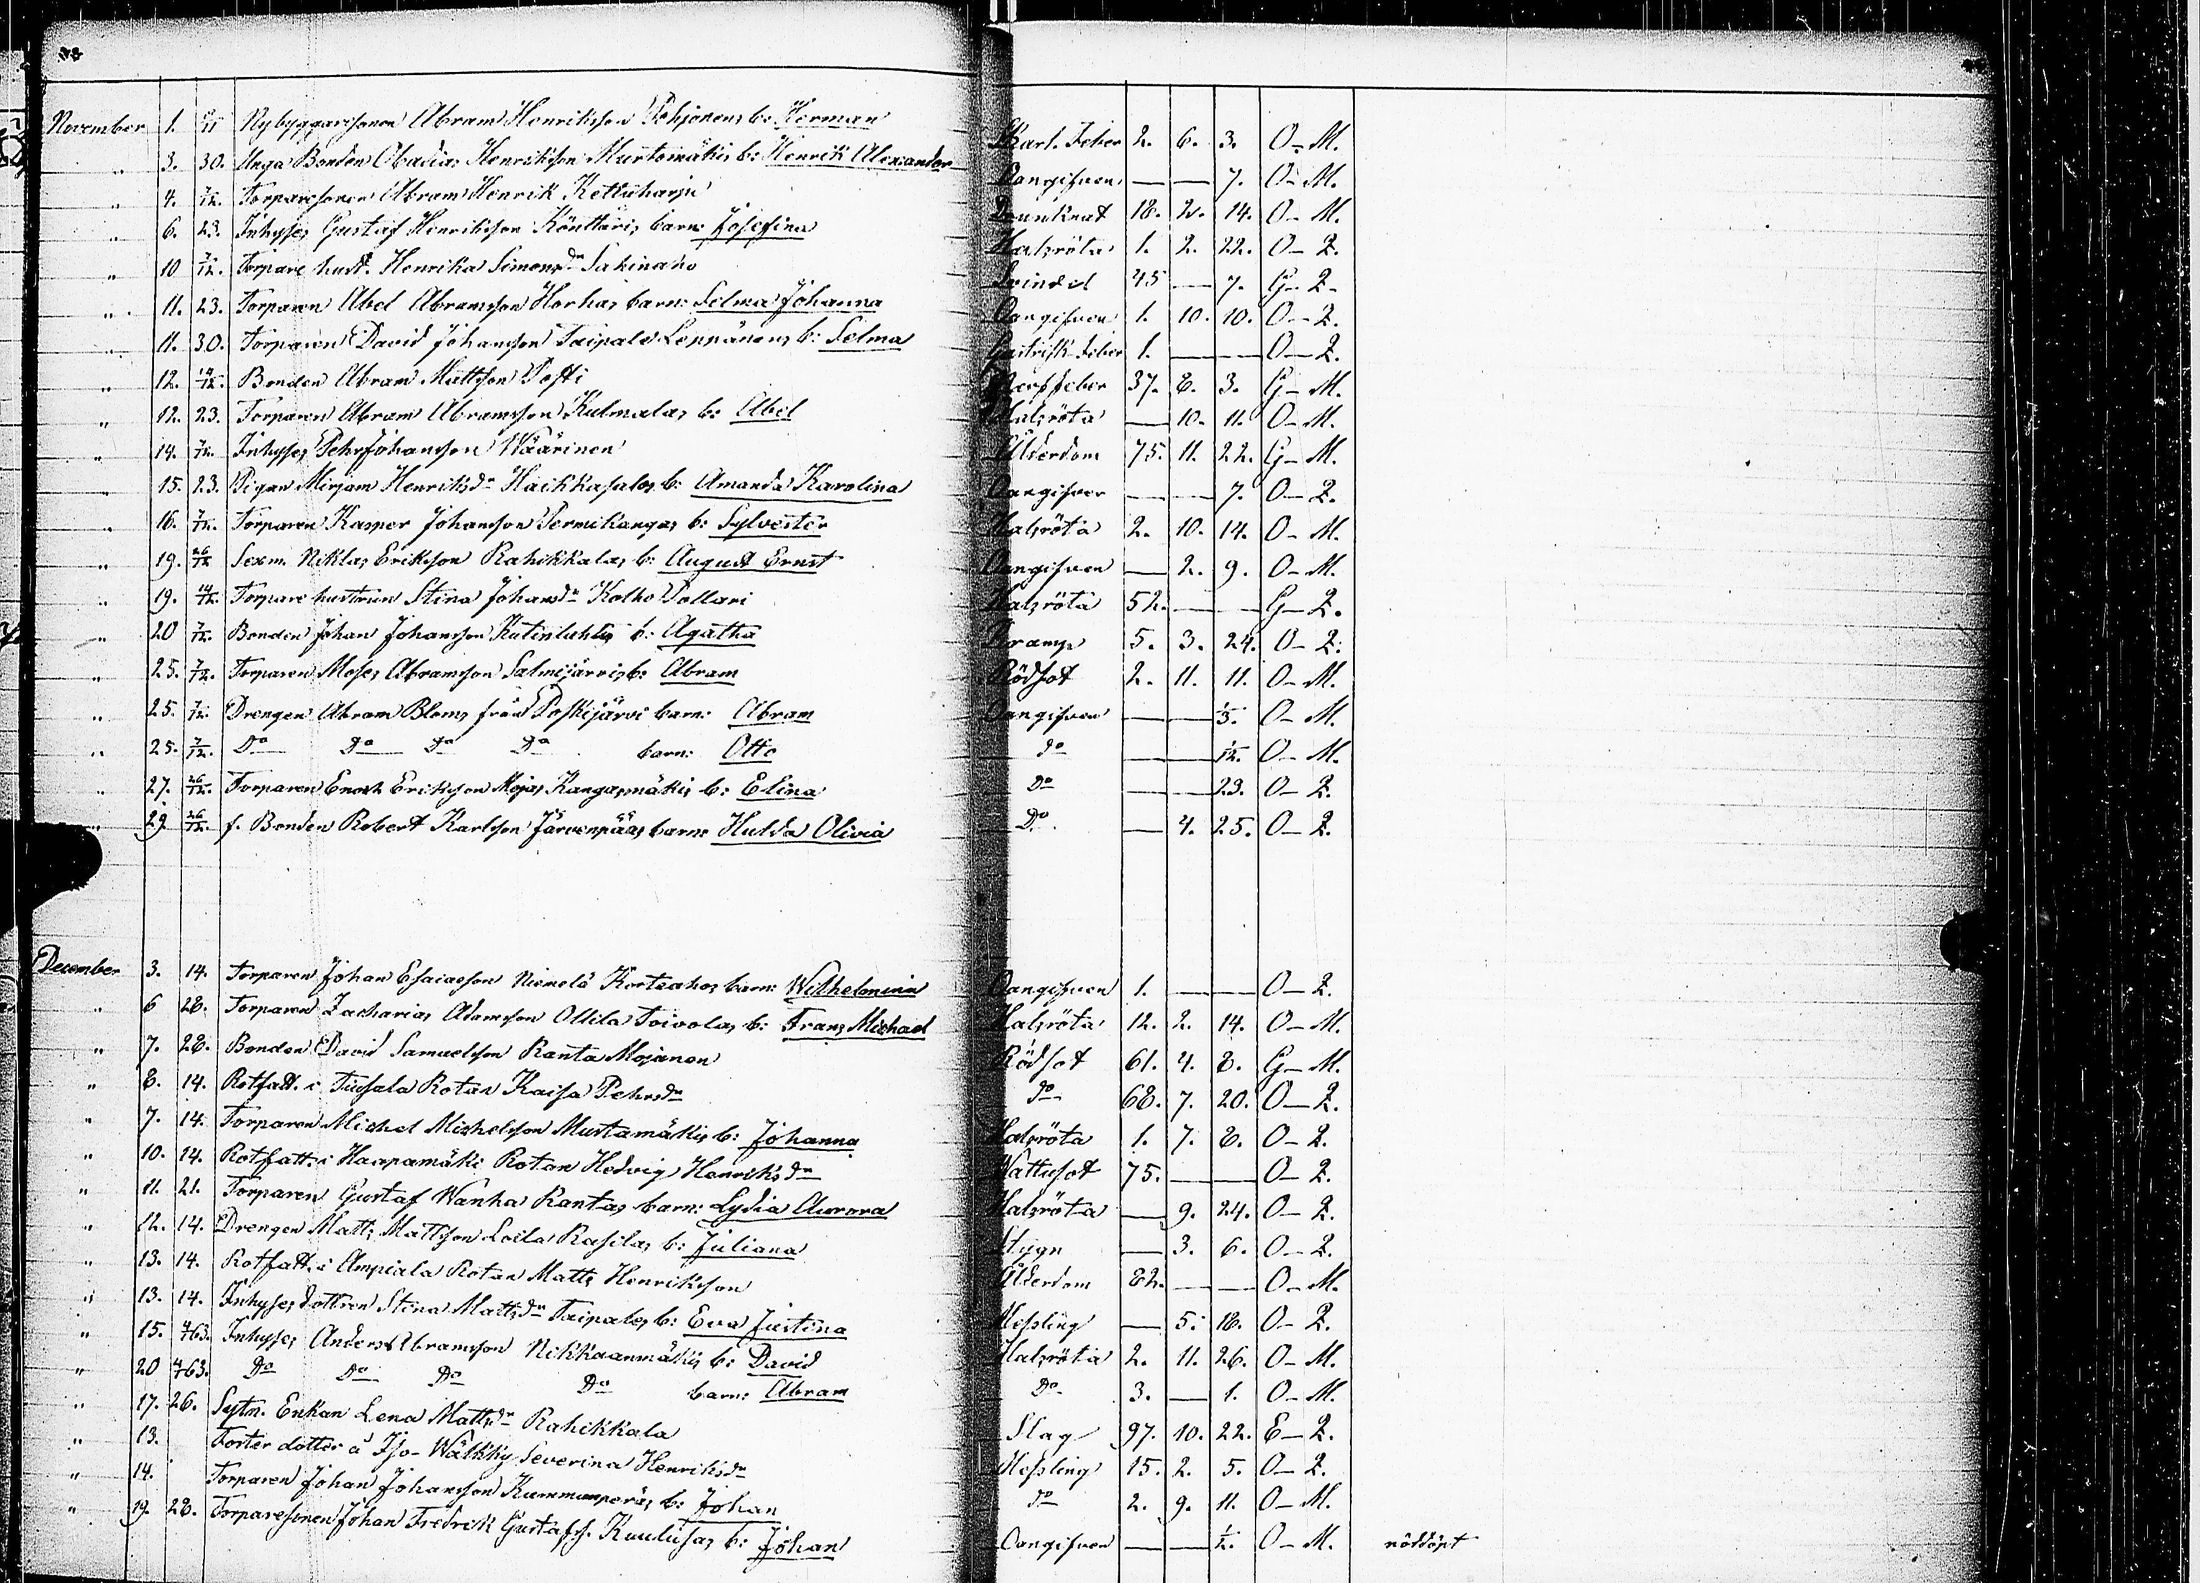 November 1. 9/11 Nybyggaresonen Abram Henriksson Pohjonens b: Herman Skarl. Feber 2. 6. 3. O - M.
" 3. 30. Unga Bonden Obadias Henriksson Murtomäkis b: Henrik Alexander Oangifven — — 7. O - M.
" 4. 7/12. Torparesonen Abram Henrik Kettuharju Drunknat 18. 2. 14. O - M.
" 6. 23. Inhyses Gustaf Henriksson Könttäris barn: Josefina Halsröta 1. 2. 22. O - Q.
" 10 7/12. Torpare hust. Henrika Simonsdr Sakinaho Svindel 45 — 7. G - Q.
" 11. 23. Torparen Abel Abramsson Horhas barn: Selma Johanna Oangifven 1. 10. 10. O - Q.
" 11. 30. Torparen David Johansson Taipale Leppänens b: Selma Gastrisk feber 1. — — O - Q.
" 12. 14/12. Bonden Abram Mattsson Posti Nerffeber 37. 8. 3. G - M.
" 12. 23. Torparen Abram Abramsson Kulmalas b: Abel Halsröta — 10. 11. O - M.
" 14. 7/12. Inhyses Pehr Johansson Wäärinen Ålderdom 75. 11. 22. G - M.
" 15. 23. Pigan Mirjam Henriksdr Haikkasalos b: Amanda Karolina Oangifven — — 7. O - Q.
" 16. 7/12. Torparen Kasper Johansson Permikangas b: Sylvester Halsröta 2. 10. 14. O - M.
" 19. 26/12 Sexm. Niklas Eriksson Rahikkalas b: August Ernst Oangifven — 2. 9. O - M.
" 19. 14/12. Torpare hustrun Stina Johansdr Kolho Pollari Halsröta 52. — — G - Q.
" 20 7/12. Bonden Johan Johansson Katinlahtis b: Agatha Kramp 5. 3. 24. O - Q.
" 25. 7/12. Torparen Moses Abramsson Salmijärvis b: Abram Rödsot 2. 11. 11. O - M.
" 25. 7/12. Drengen Abram Bloms från Poskijärvi barn: Abram Oangifven — — 1/3. O - M.
" 25. 7/12. Do Do Do Do barn: Otto do — — 1/12. O - M.
" 27. 26/12. Torparen Enok Eriksson Mojas Kangasmäkis b: Elina Do — — 23. O - Q.
" 29 26/12. f. Bonden Robert Karlsson Järvenpääs barn: Hulda Olivia Do — 4. 25. O - Q.
December 3. 14. Torparen Johan Esaiasson Niemelä Korteahos barn: Wilhelmina Oangifven 1. — — O - Q.
" 6 28. Torparen Zacharias Adamsson Ollila Toivolas b: Frans Michael Halsröta 12. 2. 14. O - M.
" 7. 28. Bonden David Samuelsson Ranta Mojanen Rödsot 61. 4. 8. G - M.
" 8. 14. Rotfatt. i Tiusala Rotan Kaisa Pehrsdr do 68. 7. 20. O - Q.
" 7. 14. Torparen Michel Michelsson Mustamäkis b: Johanna Halsröta 1. 7. 8. O - Q.
" 10. 14. Rotfatt. i Haapamäki Rotan Hedvig Henriksdr Wattusot 75. — — O - Q.
" 11. 21. Torparen Gustaf Wanha Rantas barn: Lydia Aurora Halsröta — 9. 24. O - Q.
" 12. 14. Drengen Matts Mattsson Loila Rasilas b: Juliana Stygn — 3. 6. O - Q.
" 13. 14. Rotfatt. i Ampiala Rotan Matts Henriksson Ålderdom 82. — — O - M.
" 13. 14. Inhyses dottren Stina Mattsdr Taipales b: Eva Justina Messling — 5. 18. O - Q.
" 15. 4/1 63. Inhyses Anders Abramsson Nikkaanmäkis b: David Halsröta 2. 11. 26. O - M.
" 20 4/1 63. Do Do Do Do barn: Abram Do 3. — 1. O - M.
" 17. 26. Sytn. Enkan Lena Mattsdr Rahikkala Slag 97. 10. 22. E - Q.
" 13. Foster dotter å Iso-Wälkky Severina Henriksdr Messling 15. 2. 5. O - Q.
" 14. Torparen Johan Johansson Kummunperäs b: Johan do 2. 9. 11. O - M.
" 19. 28. Torparesonen Johan Fredrik Gustafss. Kuulusas b: Johan Oangifven — — 1/2. O - M. nöddöpt